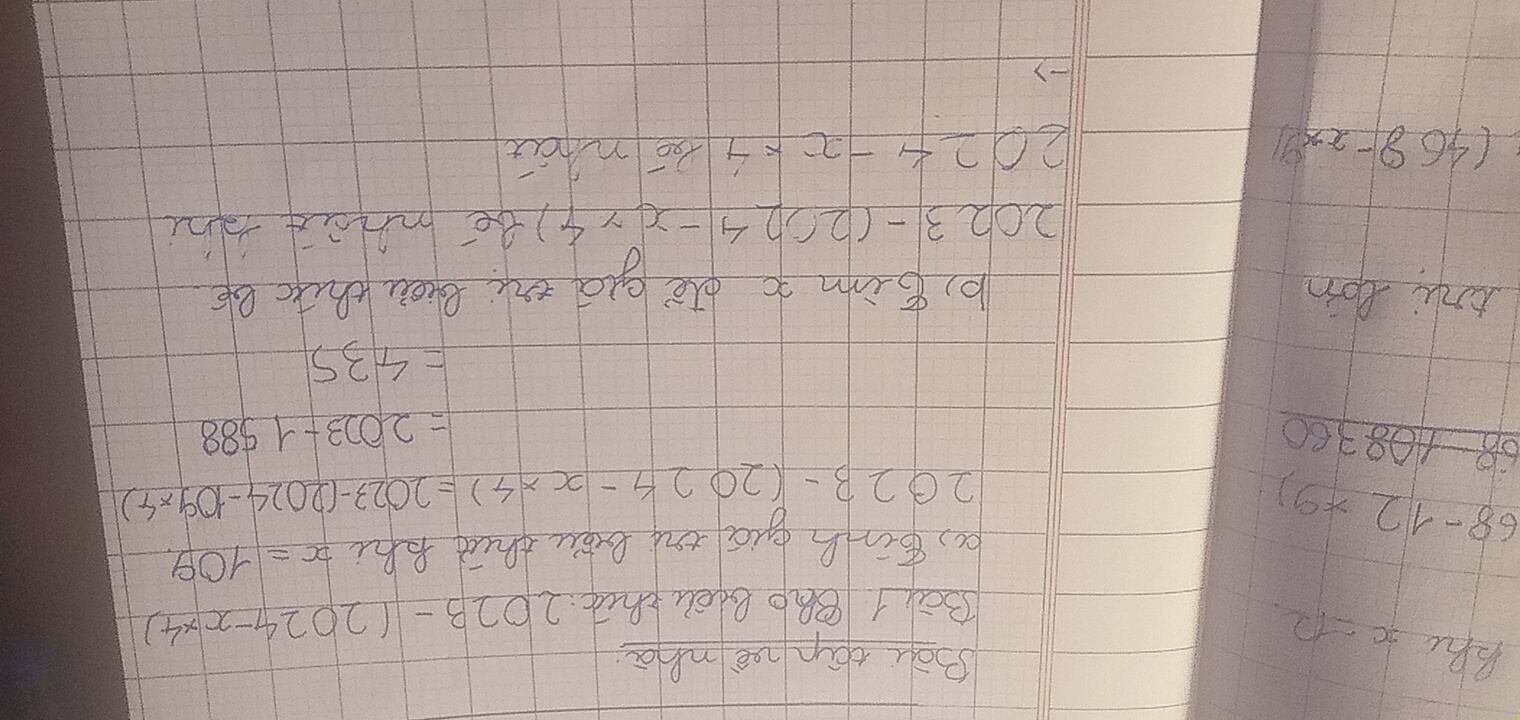 khi x = 12
68 - 12 × 9)
68 - 108 360
trị lớn
(468 - x × 9)
Bài tập về nhà:
Bài 1. Cho biểu thức: 2023 - (2024 - x × 4)
a, Tính giá trị biểu thức khi x = 109
2023 - (2024 - x × 4) = 2023 - (2024 - 109 × 4)
= 2023 - 1588
= 435
b, Tìm x để giá trị biểu thức bé
2023 - (2024 - x × 4) bé nhất khi
2024 - x × 4 bé nhất
→